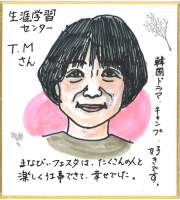 生涯学習
センター
T.M
さん
韓国ドラマ、キャンプ、好きです。
まなびぃフェスタは、たくさんの人と
楽しく仕事できて、幸せでした。